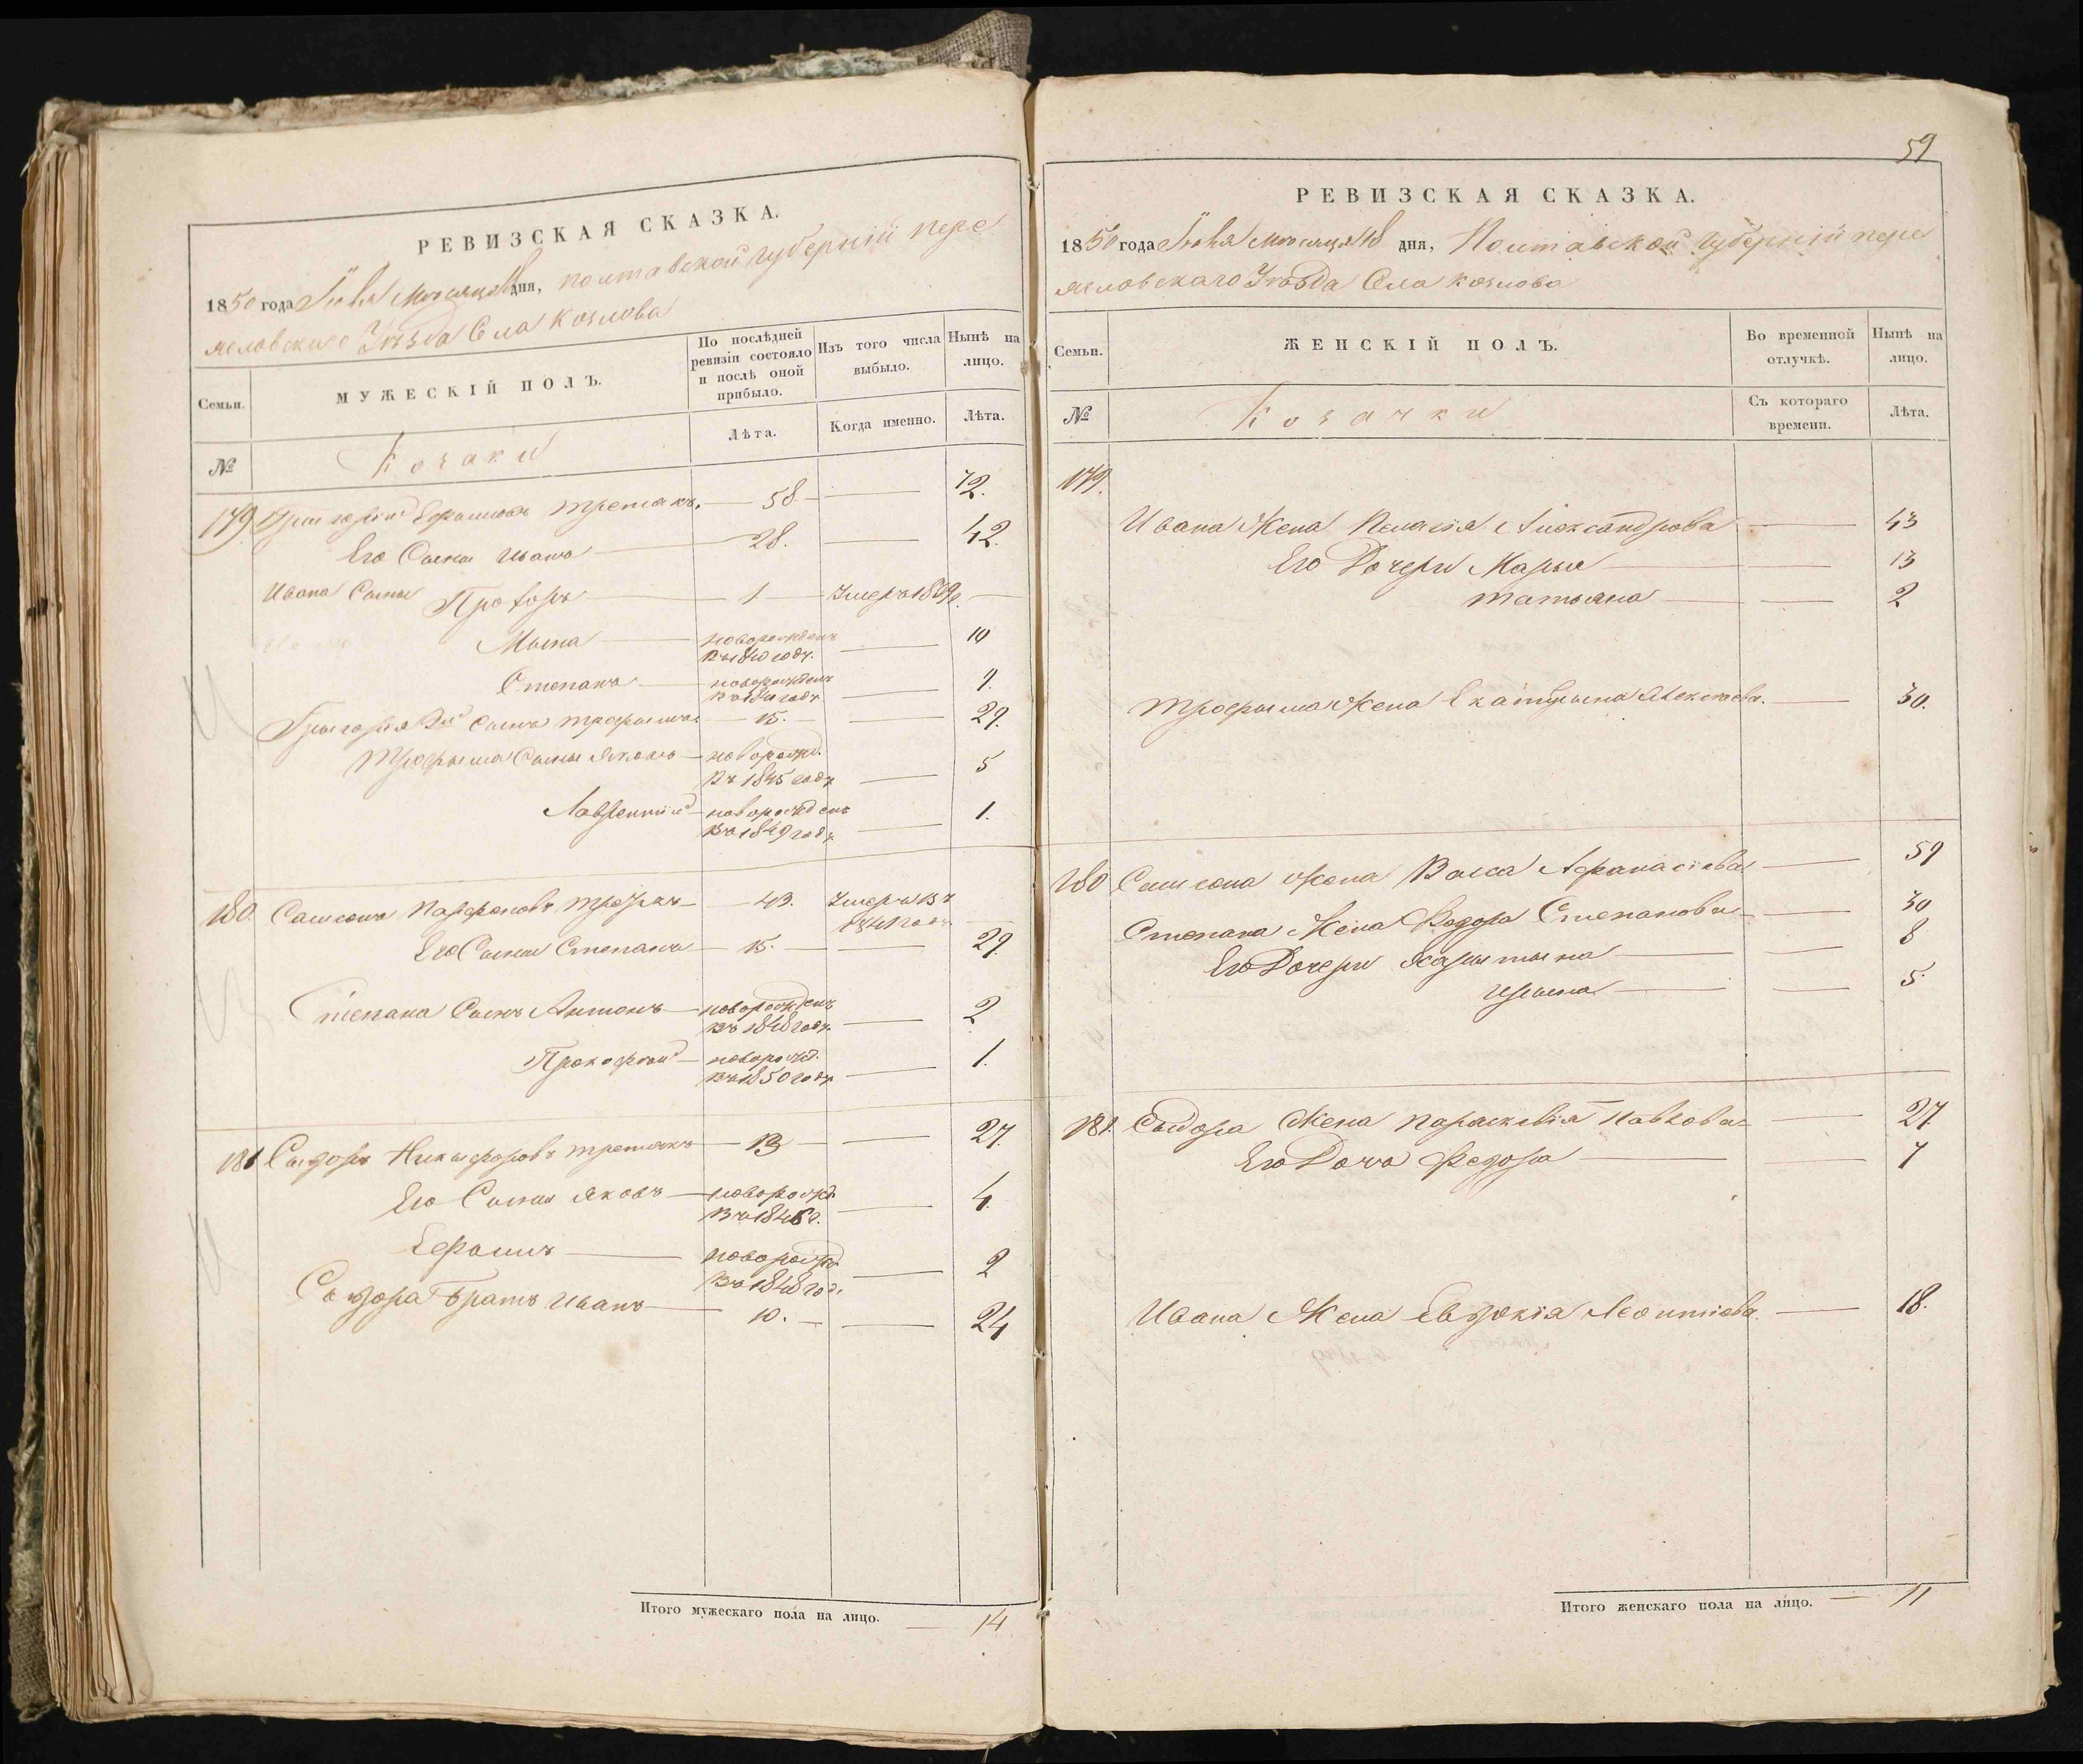 РЕВИЗСКАЯ СКАЗКА.
1850 года Іюня месяца 18 дня, Полтавской Губерніи Пере
яславскаго Уѣзда Села Козлова
Семьи.
МУЖЕСКІЙ ПОЛЪ.
По послѣдней ревизіи состояло и послѣ оной прибыло.
Изъ того числа выбыло.
Нынѣ на лицо.
№
Козаки
Лѣта.
Когда именно.
Лѣта.
179 Григорій Ефимовъ Третякъ. 58 72.
Его Сынъ Иванъ 28. 42.
Ивана Сыны Прохоръ 1 Умеръ 1839
Мына новорожденъ въ 1840 году. 10
Степанъ новорожденъ 9.
Григорія 2й Сынъ Трофимъ 15. 29.
Трофима Сыны Яковъ новорожд. въ 1845 году 5
Лаврентій новорожденъ въ 1849 году 1.
180. Самсонъ Парфеновъ 43. Умеръ въ
Его Сынъ Степанъ 15. 29.
Степана Сынъ Антонъ новорожденъ въ 1848 году. 2
Прокофій новорожд. въ 1850 году 1.
181 Сыдоръ Никифоровъ Третякъ 13 27.
Его Сынъ Яковъ новорожд. въ 1846 г. 4.
Ефимъ новорожд. въ 1848 год. 2
Сыдора Братъ Иванъ 10. 24
Итого мужескаго пола на лицо. 14
59
РЕВИЗСКАЯ СКАЗКА.
1850 года Іюня месяца 18 дня, Полтавской Губерніи Пере
яславскаго Уѣзда Села Козлова
Семьи.
ЖЕНСКІЙ ПОЛЪ.
Во временной отлучкѣ.
Нынѣ на лицо.
№
Козачки
Съ котораго времени.
Лѣта.
179.
Ивана Жена Пелагія Александрова 43
Его Дочери Марья 13
Татьяна 2
Трофима Жена Екатерина Алексеева. 30.
180 Самсона Жена Васса Афанасіева 59
Степана Жена Федора Степанова 30
Его Дочери Харытына 8
Ирына 5.
181. Сыдора Жена Параскевія Павлова 27.
Его Дочь Федора 7
Ивана Жена Евдокія Леонтіева. 18.
Итого женскаго пола на лицо. 11